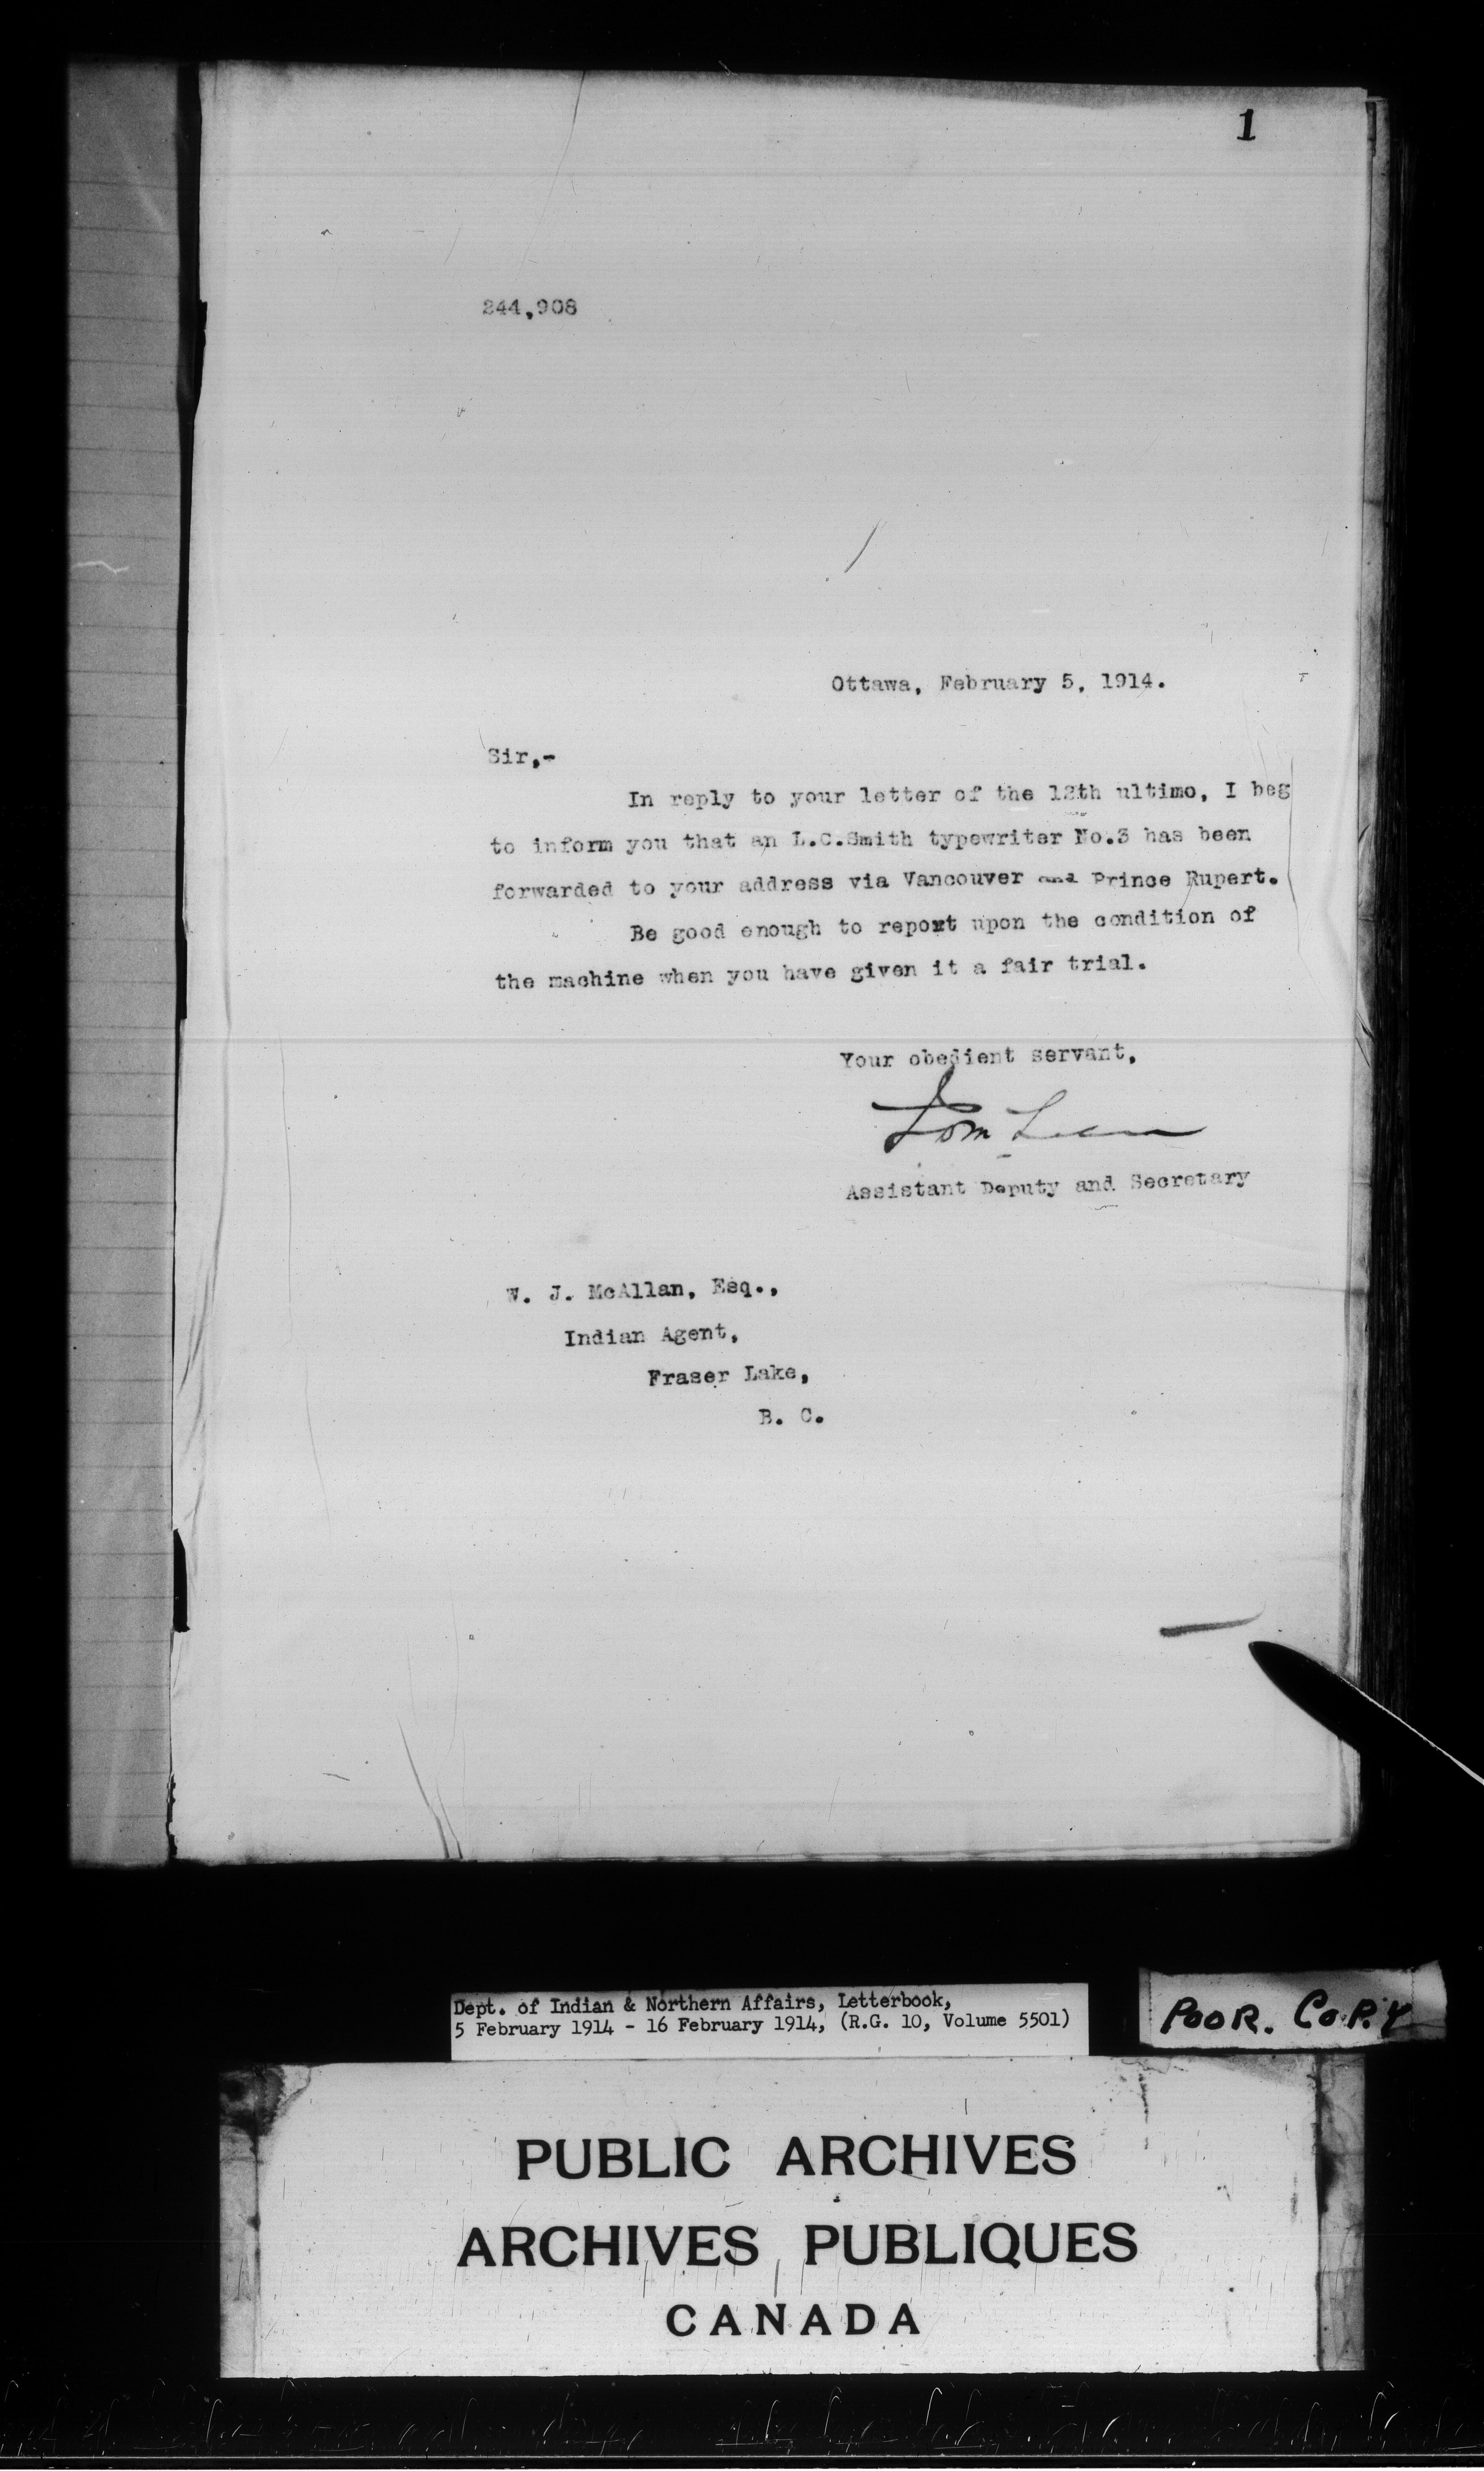 1
244,908
Ottawa, February 5, 1914.
Sir,-
In reply to your letter of the 12th ultimo, I beg
to inform you that an L.C.Smith typewriter No.3 has been
forwarded to your address via Vancouver and Prince Rupert.
Be good enough to report upon the condition of
the machine when you have given it a fair trial.
Your obedient servant,
Assistant Deputy and Secretary
W. J. McAllan, Esq.,
Indian Agent,
Fraser Lake,
B. C.
Dept. of Indian & Northern Affairs, Letterbook,
5 February 1914 - 16 February 1914, (R.G. 10, Volume 5501)
POOR. COPY
PUBLIC ARCHIVES
ARCHIVES PUBLIQUES
CANADA